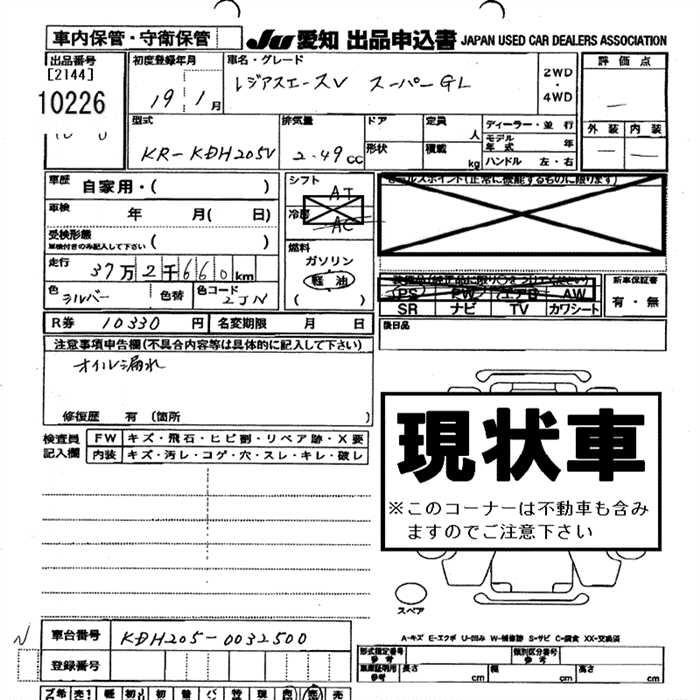 車内保管・守衛保管 JU 愛知 出品申込書 JAPAN USED CAR DEALERS ASSOCIATION
出品番号 [2144] 10226
初度登録年月 19年 1月
車名・グレード レジアスエースV スーパーGL
2WD・4WD
評価点 —
外装 内装
— —
型式 KR-KDH205V
排気量 2.49cc
ドア 形状
定員 人
積載 kg
ディーラー・並行
モデル年式 年
ハンドル 左・右
車歴 自家用・( )
車検 年 月( 日)
受検形態 ( )
車検付きのみ記入して下さい
走行 37万2千660km
色 シルバー 色替 色コード 2JN
シフト AT
冷房 AC
燃料 ガソリン 軽油
セールスポイント(正常に機能するものに限ります)
PS PW エアB AW
SR ナビ TV カワシート
新車保証書 有・無
後日品
R券 10330円 名変期限 月 日
注意事項申告欄(不具合内容等は具体的に記入して下さい)
オイル漏れ
修復歴 有 (箇所 )
検査員記入欄
FW キズ・飛石・ヒビ割・リペア跡・X要
内装 キズ・汚レ・コゲ・穴・スレ・キレ・破レ
現状車
※このコーナーは不動車も含みますのでご注意下さい
スペア
A-キズ E-エクボ U-凹み W-補修跡 S-サビ C-腐食 XX-交換済
N
車台番号 KDH205-0032500
登録番号
形式指定番号 参考 類別区分番号 参考
車庫証明用 参考 長さ cm 幅 cm 高さ cm